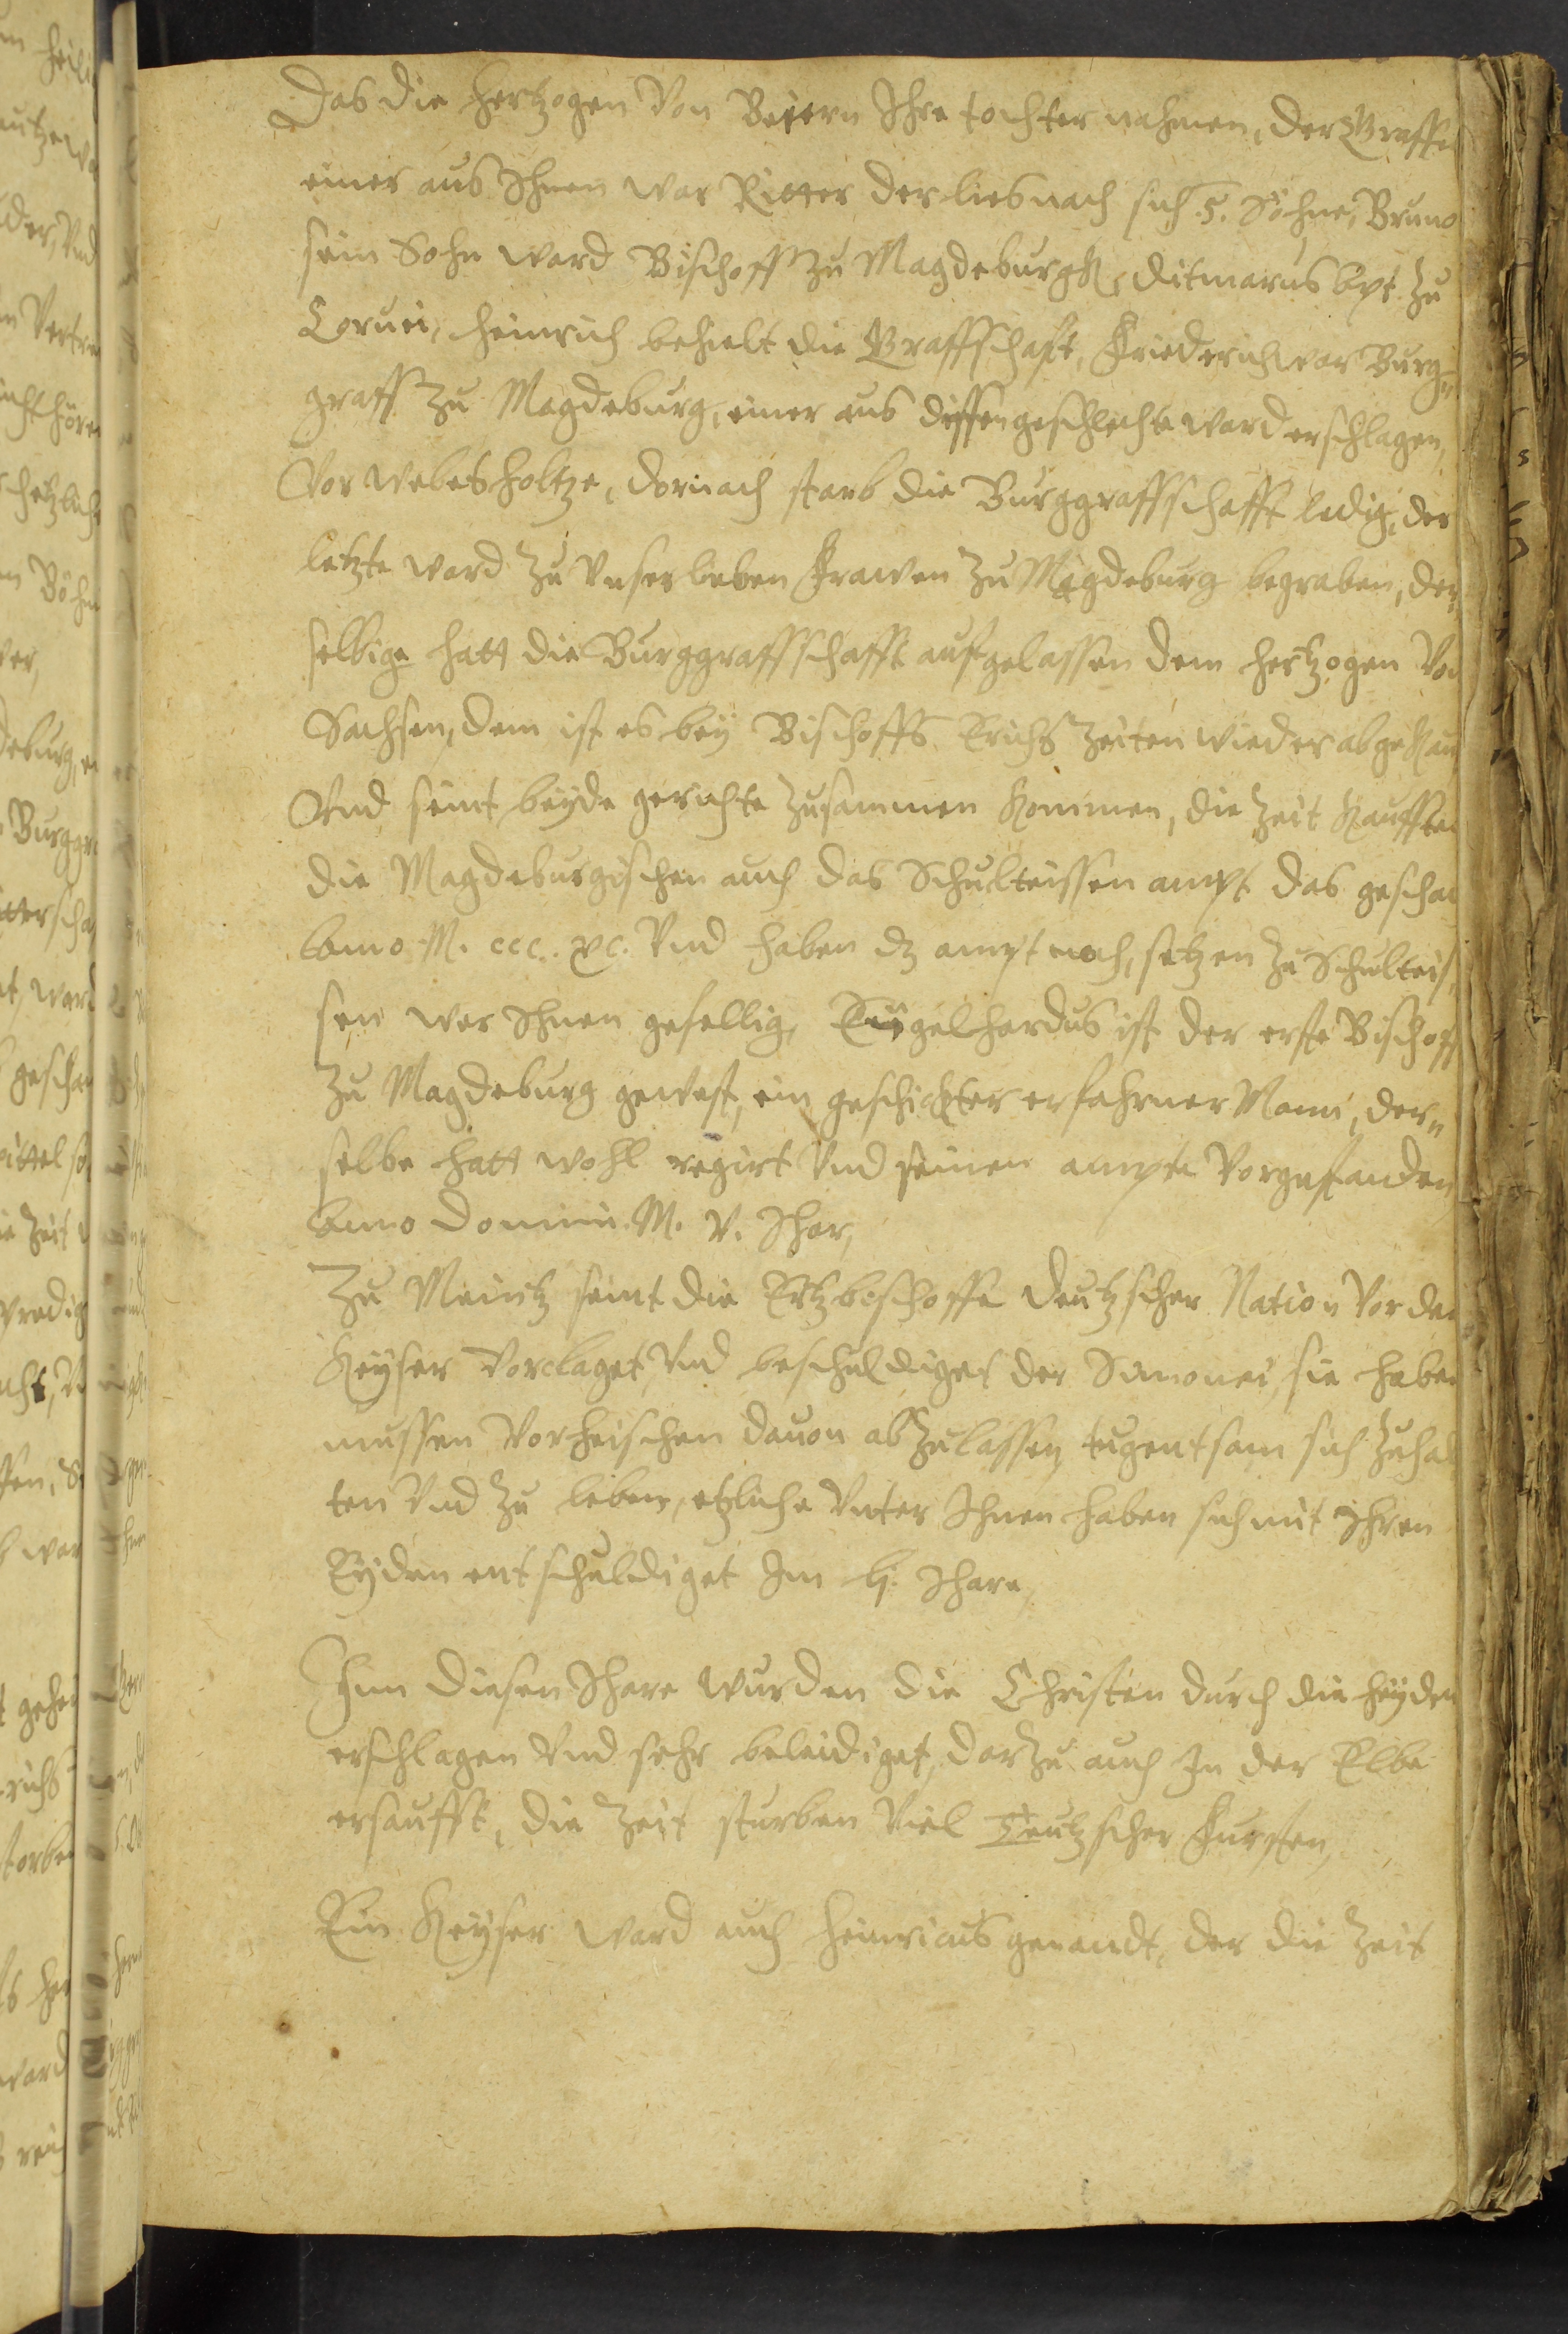 Das die Hertzogen Von Beiern Ihre tochter nahmen, der Graffen
einer aus Ihnen war Ritter der lies nach sich .5. Söhne, Bruno
sein Sohn ward Bischoff zu Magdeburgk, Ditmarus Apt zu
Coruei, Heinrich behielt die Graffschaft, Friederich war Burg„
graff zu Magdeburg, einer aus dissen geschlecht ward erschlagen,
Vor Welfesholtze, dornach starb die Burggraffschafft ledig, der
letzte ward zu Vnser lieben Frawen zu Magdeburg begraben, der„
selbige hatt die Burggraffschafft aufgelassen dem Hertzogen Von
Sachsen, dem ist es bey Bischoffs Erichs Zeiten wieder abgekau
Vnd seint beyde gerichte zusammen kommen, die Zeit kaufften
die Magdeburgischen auch das Schulteissen ampt das geschach
Anno M. ccc. xc. Vnd haben dz ampt noch, setzen zu Schulteis„
sen wer Ihnen gefellig, Engelhardus ist der erste Bischoff
zu Magdeburg gewest, ein geschickter erfahrner Mann, der„
selbe hatt wohl regirt Vnd seinen ampte Vorgestanden
Anno Domini M. V. Ihar,
Zu Meintz seint die Ertzbischoffe deutzscher Nation Vor dem
Keyser Vorclaget, Vnd beschuldiget der Simonei, sie haben
mussen Vorheischen dauon abzulassen, tugentsam sich zuhal
ten Vnd zu leben, etzliche Vnter Ihnen haben sich mit Ihren
Eyden entschuldiget Im lj. Ihare,
Inn diesen Ihare wurden die Christen durch die Heyden
erschlagen Vnd sehr beleidiget, darzu auch In der Elbe
ersaufft, die Zeit sturben Viel Teutzscher Fursten,
Ein Keyser ward auch Heinricus genandt, der die Zeit